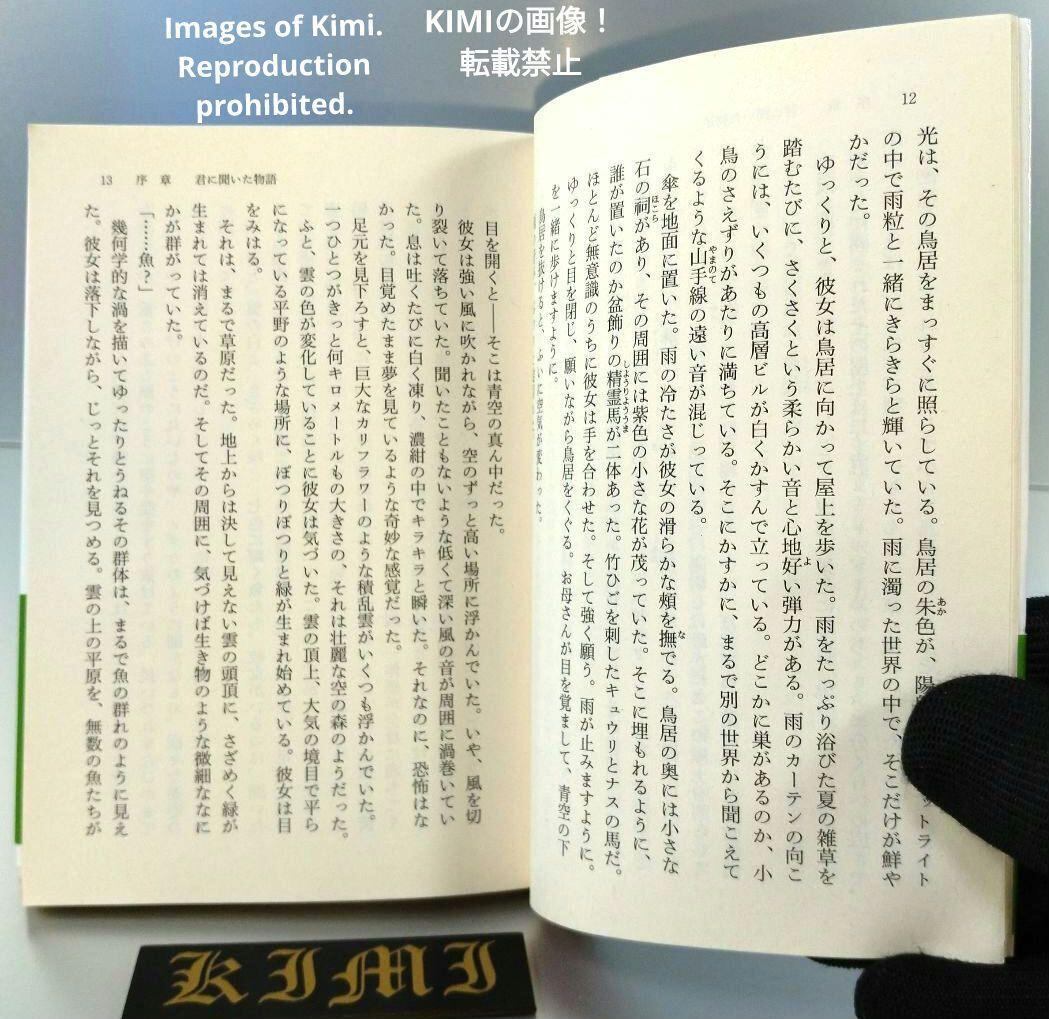 Images of Kimi.
Reproduction
prohibited.
KIMIの画像！
転載禁止
12
光は、その鳥居をまっすぐに照らしている。鳥居の朱色が、陽
ットライト
の中で雨粒と一緒にきらきらと輝いていた。雨に濁った世界の中で、そこだけが鮮や
かだった。
ゆっくりと、彼女は鳥居に向かって屋上を歩いた。雨をたっぷり浴びた夏の雑草を
踏むたびに、さくさくという柔らかい音と心地好い弾力がある。雨のカーテンの向こ
うには、いくつもの高層ビルが白くかすんで立っている。どこかに巣があるのか、小
鳥のさえずりがあたりに満ちている。そこにかすかに、まるで別の世界から聞こえて
くるような山手線の遠い音が混じっている。
傘を地面に置いた。雨の冷たさが彼女の滑らかな頬を撫でる。鳥居の奥には小さな
石の祠があり、その周囲には紫色の小さな花が茂っていた。そこに埋もれるように、
誰が置いたのか盆飾りの精霊馬が二体あった。竹ひごを刺したキュウリとナスの馬だ。
ほとんど無意識のうちに彼女は手を合わせた。そして強く願う。雨が止みますように。
ゆっくりと目を閉じ、願いながら鳥居をくぐる。お母さんが目を覚まして、青空の下
を一緒に歩けますように。
鳥居を抜けると、ふいに空気が変わった。
13 序章 君に聞いた物語
目を開くと――そこは青空の真ん中だった。
彼女は強い風に吹かれながら、空のずっと高い場所に浮かんでいた。いや、風を切
り裂いて落ちていた。聞いたこともないような低くて深い風の音が周囲に渦巻いてい
た。息は吐くたびに白く凍り、濃紺の中でキラキラと瞬いた。それなのに、恐怖はな
かった。目覚めたまま夢を見ているような奇妙な感覚だった。
足元を見下ろすと、巨大なカリフラワーのような積乱雲がいくつも浮かんでいた。
一つひとつがきっと何キロメートルもの大きさの、それは壮麗な空の森のようだった。
ふと、雲の色が変化していることに彼女は気づいた。雲の頂上、大気の境目で平ら
になっている平野のような場所に、ぽつりぽつりと緑が生まれ始めている。彼女は目
をみはる。
それは、まるで草原だった。地上からは決して見えない雲の頭頂に、さざめく緑が
生まれては消えているのだ。そしてその周囲に、気づけば生き物のような微細ななに
かが群がっていた。
「……魚？」
幾何学的な渦を描いてゆったりとうねるその群体は、まるで魚の群れのように見え
た。彼女は落下しながら、じっとそれを見つめる。雲の上の平原を、無数の魚たちが
KIMI